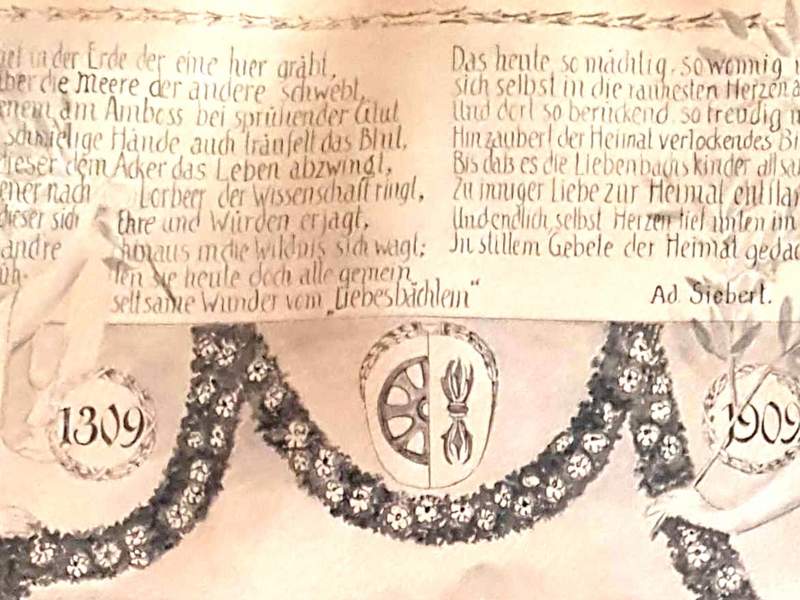 in der Erde der eine hier gräbt,
über die Meere der andere schwebt,
am Amboss bei sprühender Glut
schwielige Hände auch tränfelt das Blut,
dieser dem Acker das Leben abzwingt,
ener nach Lorbeer der Wissenschaft ringt,
dieser sich Ehre und Würden erjagt,
andre hinaus in die Wildnis sich wagt;
len sie heute doch alle gemein
seltsame Wunder vom „Liebesbächlein"
Das heute so mächtig, so wonnig
sich selbst in die rauhesten Herzen
Und dort so berückend, so freudig
Hinzaubert der Heimat verlockendes
Bis daß es die Liebenbachskinder all
Zu inniger Liebe zur Heimat
Und endlich selbst Herzen tief unten im
In stillem Gebete der Heimat
Ad Siebert.
1309
1909